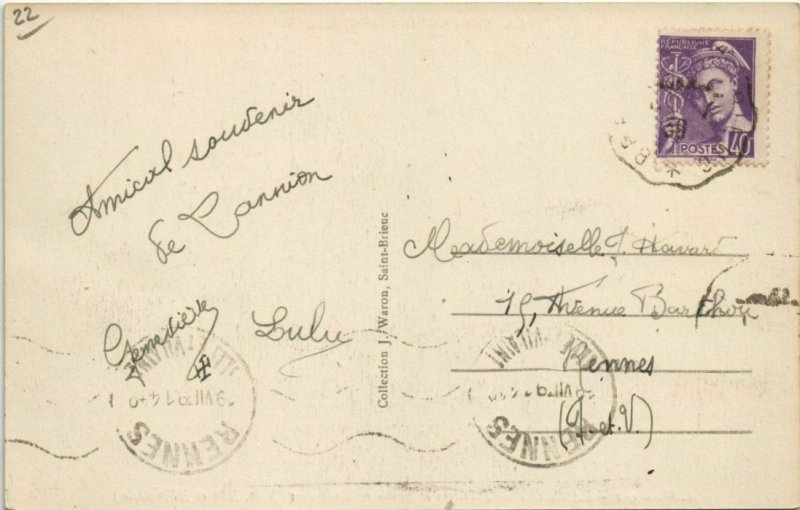 22
Amical souvenir
de Lannion
Geneviève
Lulu
Collection J. Waron, Saint-Brieuc
RÉPUBLIQUE
FRANÇAISE
POSTES 40
Mademoiselle J. Havard
15, Avenue Barthou
Rennes
(I. et V.)
RENNES
RENNES